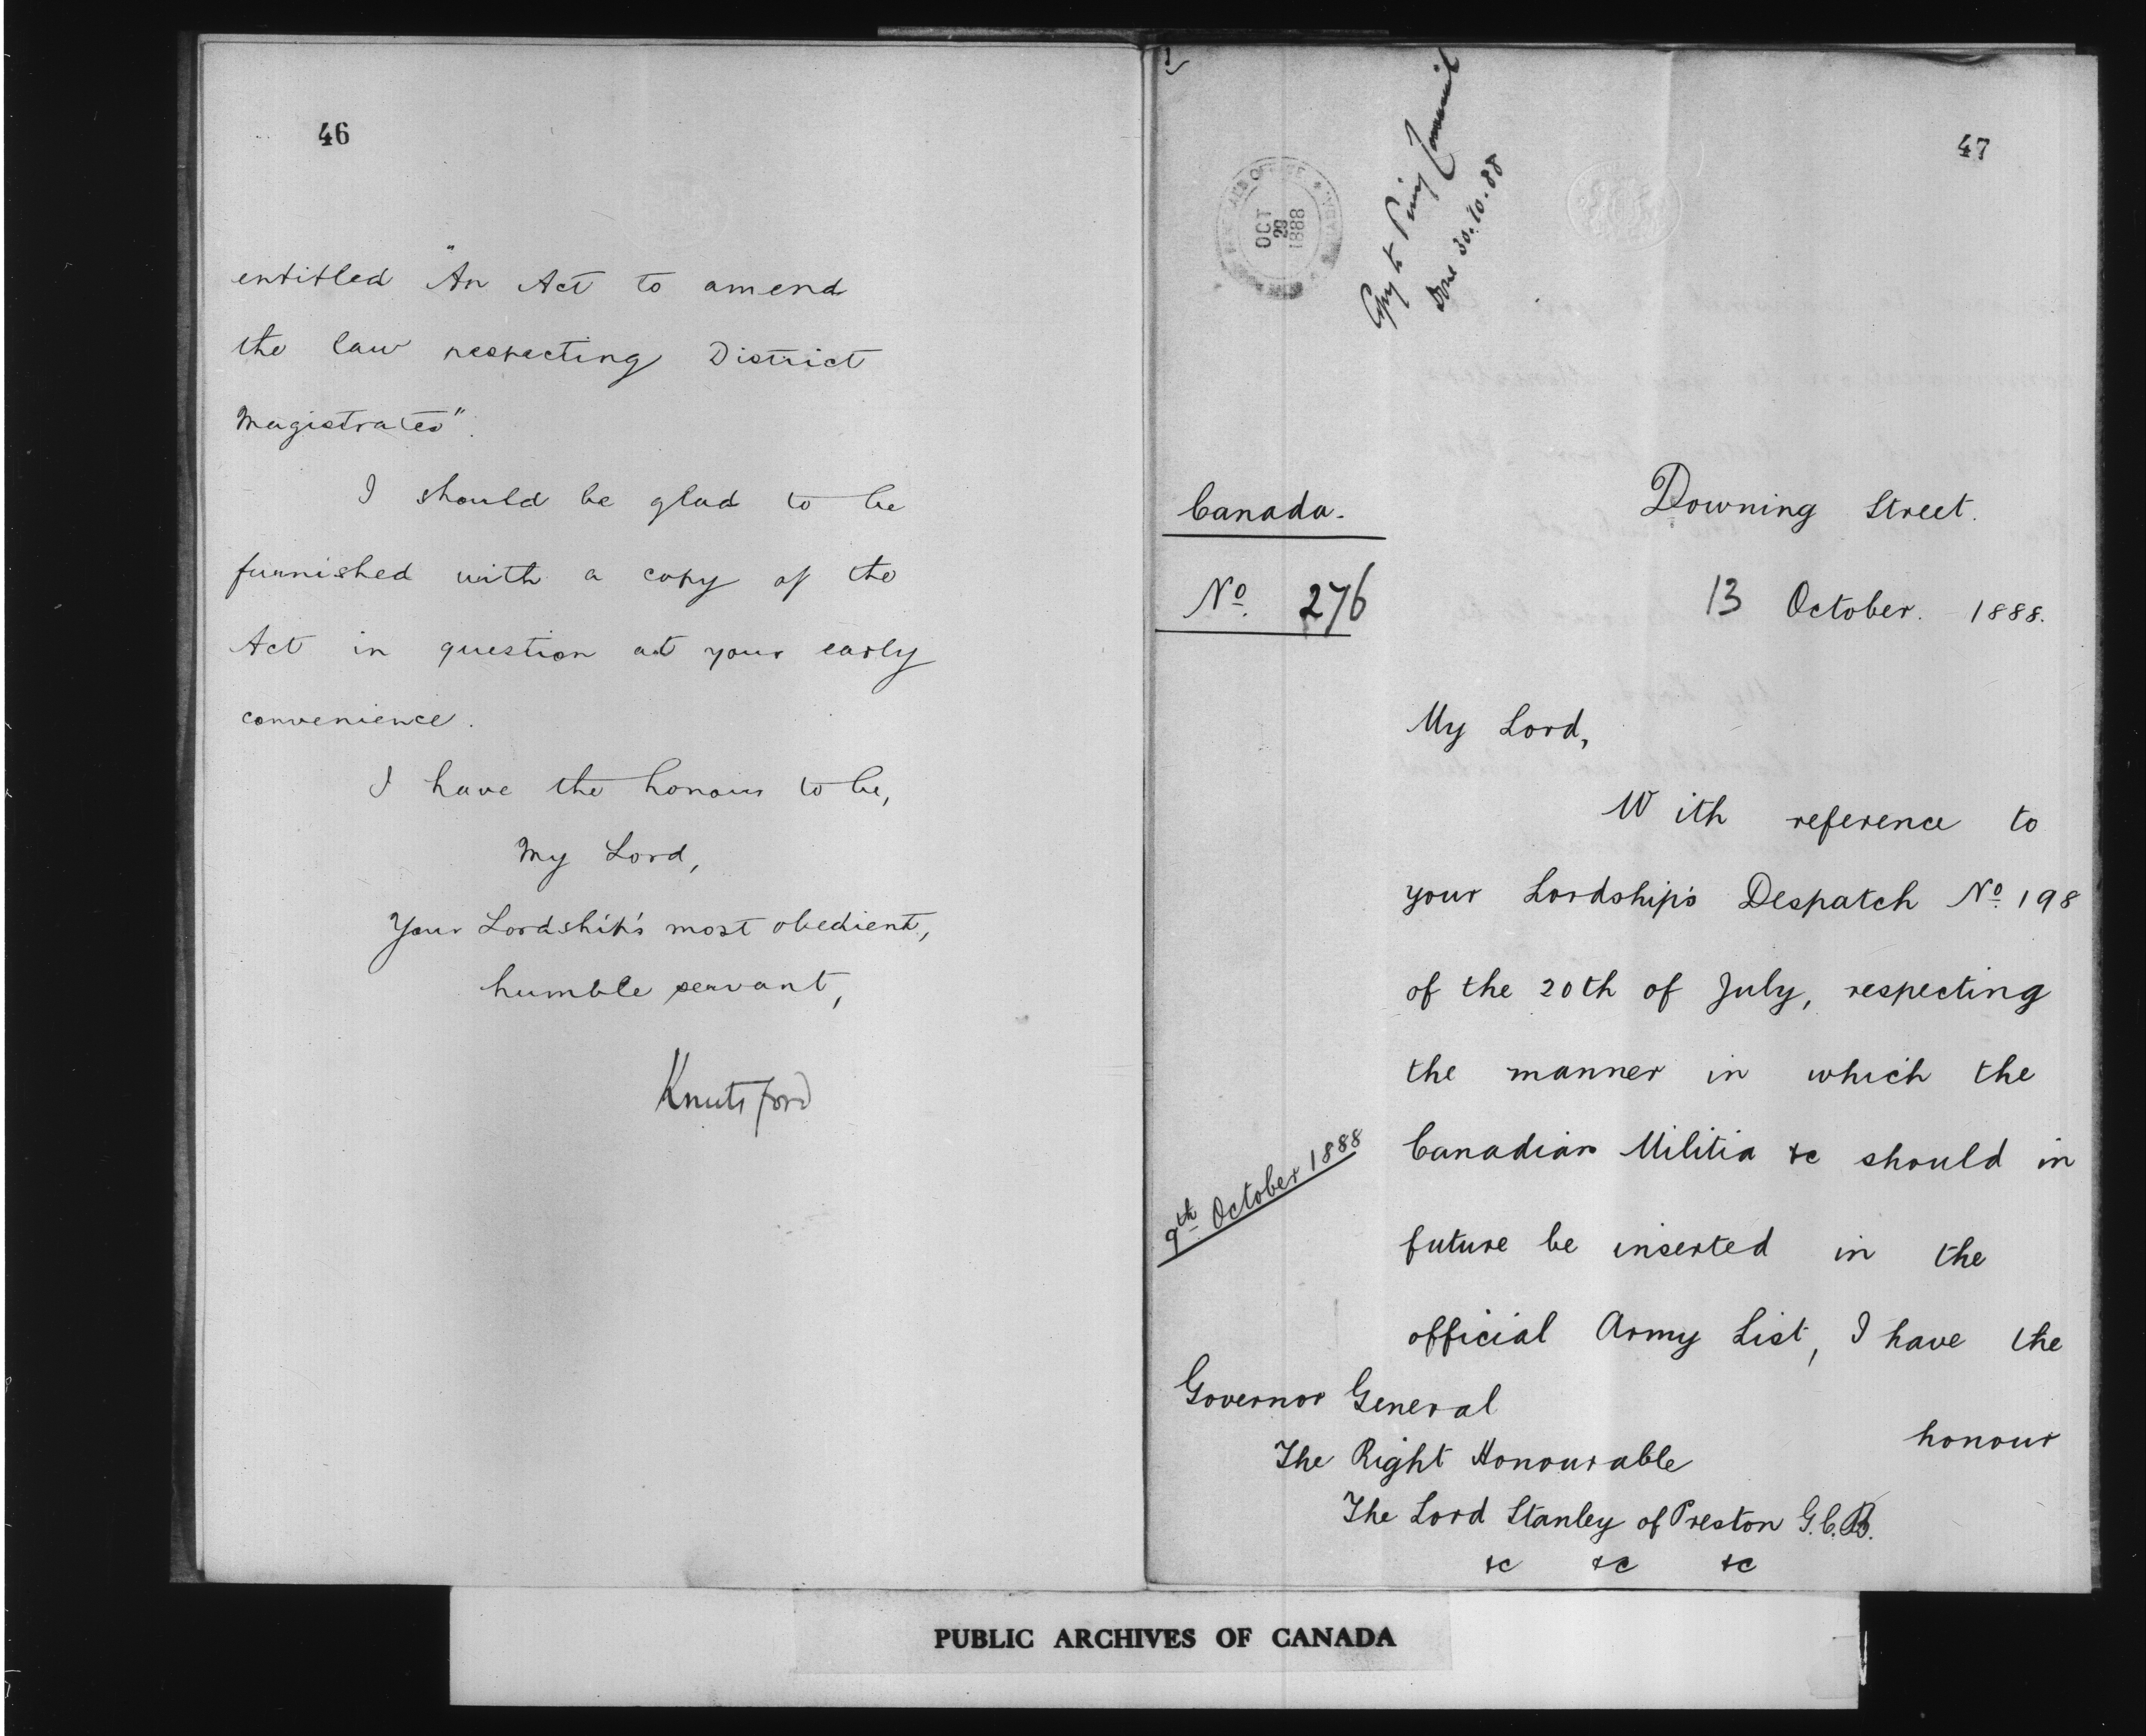 46
entitled "An Act to amend
the law respecting District
Magistrates".
I should be glad to be
furnished with a copy of the
Act in question at your early
convenience.
I have the honour to be,
My Lord,
Your Lordship's most obedient,
humble servant,
Knutsford
47
OCT
29
1888
Copy to Privy Council
Done 30.10.88
Canada.
Downing Street.
No. 276
13 October. 1888.
My Lord,
With reference to
your Lordship's Despatch No. 198
of the 20th of July, respecting
the manner in which the
9th October 1888
Canadian Militia &c should in
future be inserted in the
official Army List, I have the
honour
Governor General
The Right Honourable
The Lord Stanley of Preston G.C.B.
&c &c &c
PUBLIC ARCHIVES OF CANADA